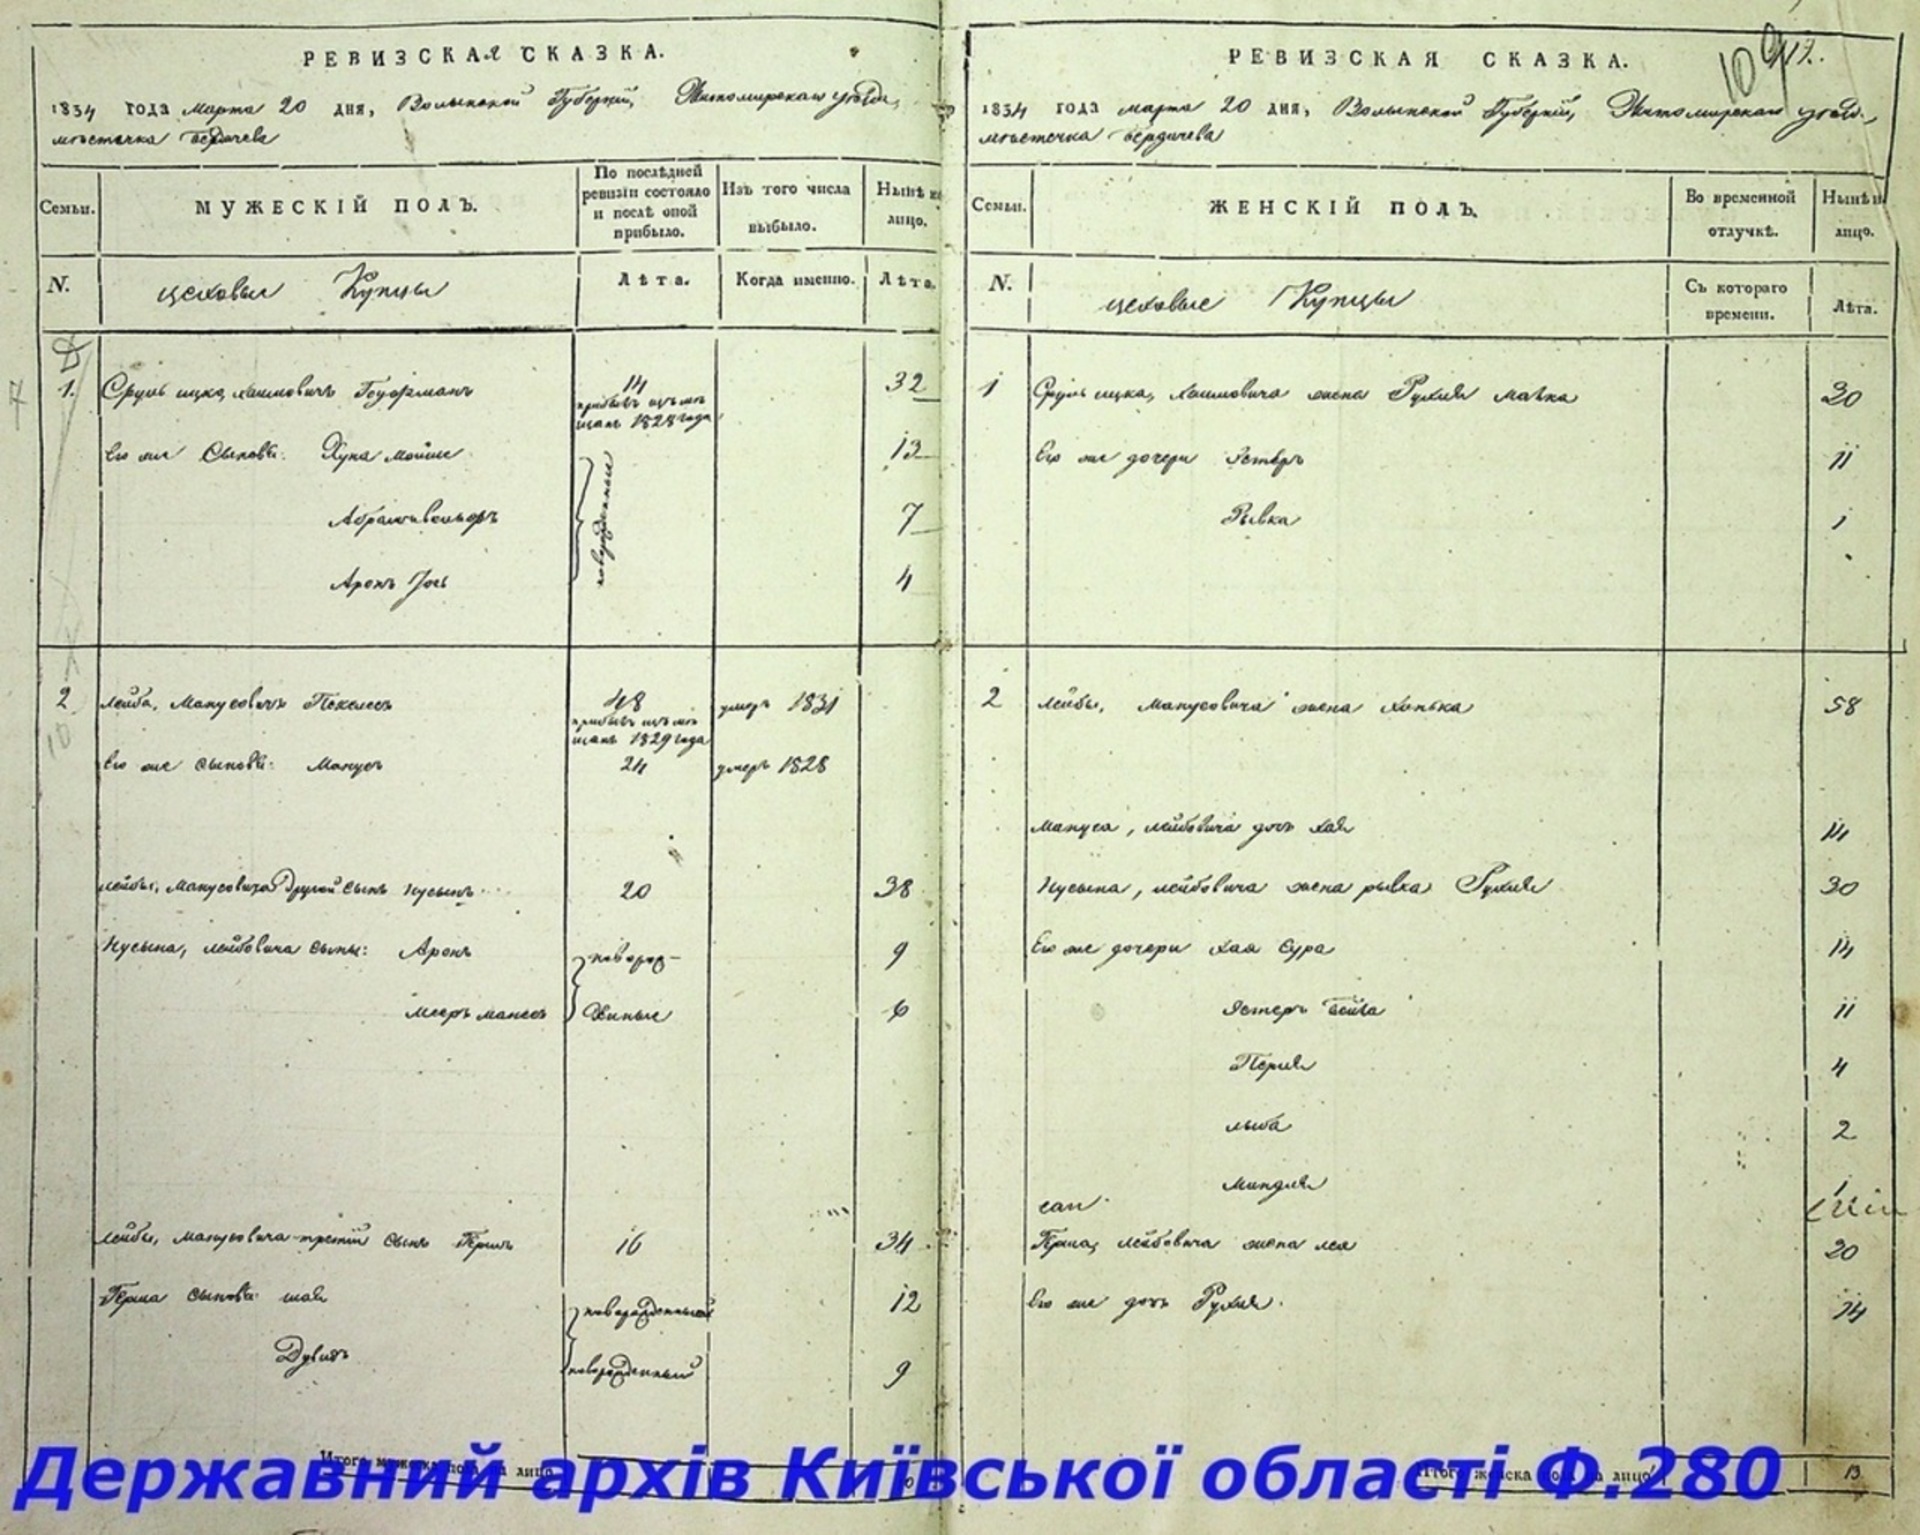 РЕВИЗСКАЯ СКАЗКА.
1834 года марта 20 дня, Волынской Губернии, Житомирскаго уезда,
местечка Бердичева
Семьи.
МУЖЕСКІЙ ПОЛЪ.
По послѣдней ревизіи состояло и послѣ оной прибыло.
Изъ того числа выбыло.
Нынѣ на лицо.
N.
цеховые Купцы
Лѣта.
Когда именно.
Лѣта.
1. Сруль ицко Хаимовичъ 14 32
прибылъ изъ мѣщанъ 1828 года
Его же Сыновья: Хуна мойше новорожденные 13
Абрамъ вольфъ 7
Аронъ Іось 4
2 Лейба, Манусовичъ Пекелесъ 48 умеръ 1831
прибылъ изъ мѣщанъ 1829 года
Его же сыновья: Манусъ 24 умеръ 1828
Лейбы, Манусовича Другой Сынъ Нусынъ 20 38
Нусына, Лейбовича сыны: Аронъ новорож- 9
Мееръ манесъ денные 6
Лейбы, Манусовича третій Сынъ Гершъ 16 34
Герша Сыновья шая новорожденный 12
Дувидъ новорожденный 9
Итого мужеска пола на лицо
РЕВИЗСКАЯ СКАЗКА.
1834 года марта 20 дня, Волынской Губерніи, Житомирскаго уезда,
местечка Бердичева
Семьи.
ЖЕНСКІЙ ПОЛЪ.
Во временной отлучкѣ.
Нынѣ на лицо.
N.
цеховые Купцы
Съ котораго времени.
Лѣта.
1 Сруль ицка, Хаимовича жена Рухля малка 30
Его же дочери Эстеръ 11
Рывка 1
2 Лейбы, Манусовича жена Ханька 58
Мануса, Лейбовича дочь Хая 14
Нусына, Лейбовича жена рывка Рухля 30
Его же дочери Хая Сура 14
Эстеръ Бейла 11
Перля 4
2
Миндля 1
Герша, Лейбовича жена лея 20
Его же дочь Рухля. 14
Итого женска пола на лицо 13
Державний архів Київської області Ф.280